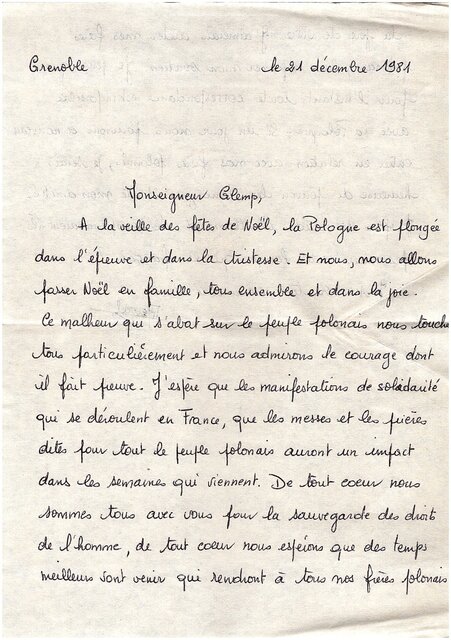 Grenoble le 21 décembre 1981
Monseigneur Glemp,
A la veille des fêtes de Noël, la Pologne est plongée
dans l'épreuve et dans la tristesse. Et nous, nous allons
passer Noël en famille, tous ensemble et dans la joie.
Ce malheur qui s'abat sur le peuple polonais nous touche
tous particulièrement et nous admirons le courage dont
il fait preuve. J'espère que les manifestations de solidarité
qui se déroulent en France, que les messes et les prières
dites pour tout le peuple polonais auront un impact
dans les semaines qui viennent. De tout coeur nous
sommes tous avec vous pour la sauvegarde des droits
de l'homme, de tout coeur nous espérons que des temps
meilleurs vont venir qui rendront à tous nos frères polonais